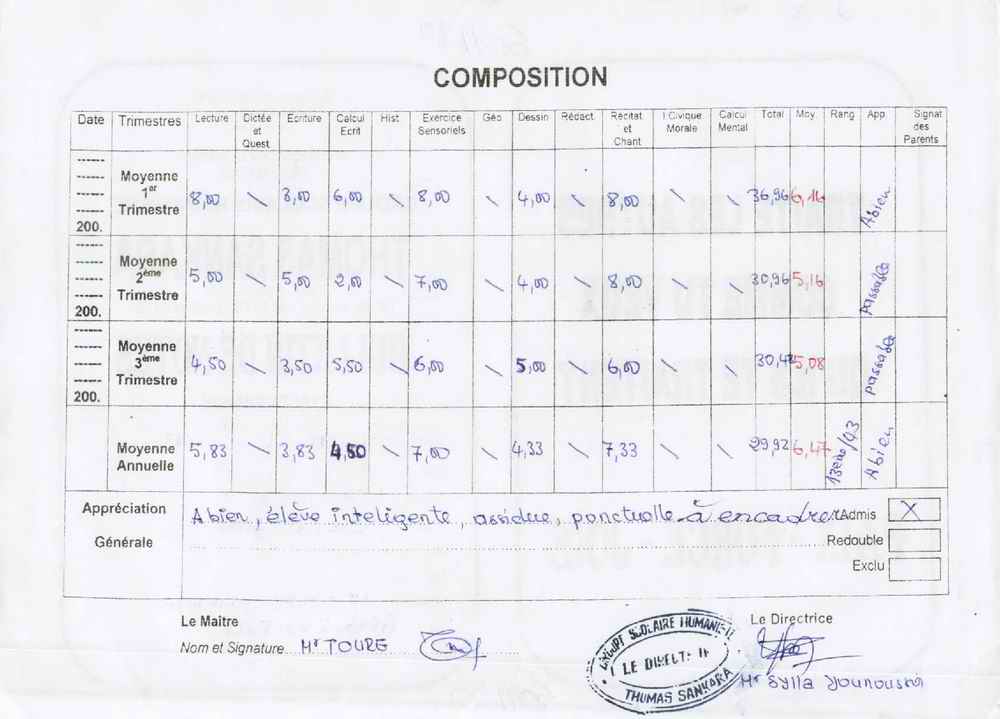 COMPOSITION
Date Trimestres Lecture Dictée et Quest Ecriture Calcul Ecrit Hist Exercice Sensoriels Géo Dessin Rédact Récitat et Chant I Civique Morale Calcul Mental Total Moy Rang App Signat des Parents
Moyenne 1er Trimestre 200. 8,00 \ 3,00 6,00 \ 8,00 \ 4,00 \ 8,00 \ \ 36,96 6,16 Abien
Moyenne 2ème Trimestre 200. 5,00 \ 5,00 2,00 \ 7,00 \ 4,00 \ 8,00 \ \ 30,96 5,16 Passable
Moyenne 3ème Trimestre 200. 4,50 \ 3,50 5,50 \ 6,00 \ 5,00 \ 6,00 \ \ 30,42 5,08 passable
Moyenne Annuelle 5,83 \ 3,83 4,50 \ 7,00 \ 4,33 \ 7,33 \ \ 29,92 6,47 13eno/43 Abien
Appréciation Générale
Abien, élève inteligente, assidue, ponctuelle à encadrer Admis X
Redouble
Exclu
Le Maître
Nom et Signature Mr TOURE
GROUPE SCOLAIRE HUMANE-II
LE DIRECT
THOMAS SANKARA
Le Directrice
Mr Sylla Younoussa